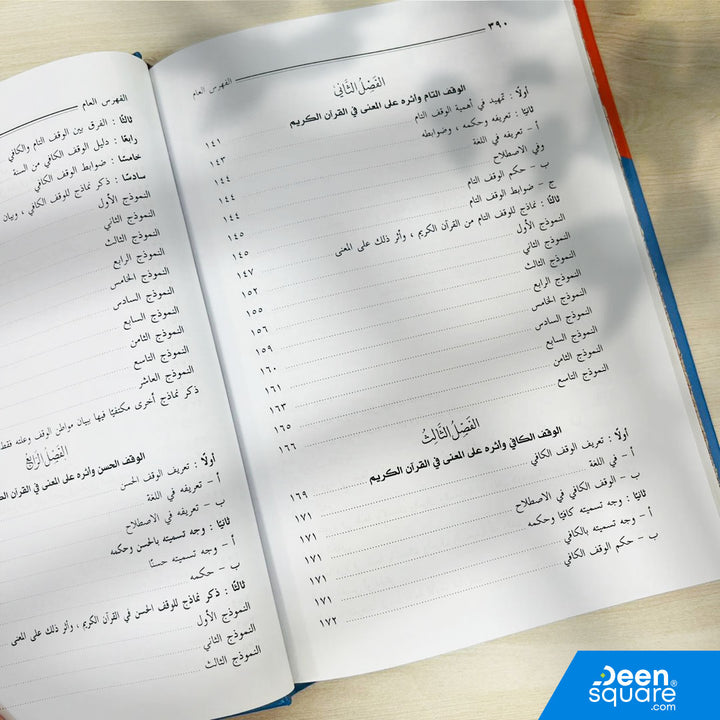 ٣٩٠
الفهرس العام
الفَصْلُ الثَّانِي
الوقف التام وأثره على المعنى في القرآن الكريم
أولًا : تمهيد في أهمية الوقف التام ١٤١
ثانيًا : تعريفه وحكمه ، وضوابطه ١٤٣
أ – تعريفه في اللغة ١٤٤
وفي الاصطلاح ١٤٤
ب – حكم الوقف التام ١٤٤
ج – ضوابط الوقف التام ١٤٥
ثالثًا : نماذج للوقف التام من القرآن الكريم ، وأثر ذلك على المعنى ١٤٥
النموذج الأول ١٤٧
النموذج الثاني ١٥٢
النموذج الثالث ١٥٥
النموذج الرابع ١٥٦
النموذج الخامس ١٥٩
النموذج السادس ١٦٠
النموذج السابع ١٦١
النموذج الثامن ١٦٣
النموذج التاسع ١٦٥
١٦٦
الفَصْلُ الثَّالِثُ
الوقف الكافي وأثره على المعنى في القرآن الكريم
أولًا : تعريف الوقف الكافي ١٦٩
أ – في اللغة ١٧١
ب – الوقف الكافي في الاصطلاح ١٧١
ثانيًا : وجه تسميته كافيًا وحكمه ١٧١
أ – وجه تسميته بالكافي ١٧١
ب – حكم الوقف الكافي ١٧١
١٧٢
الفهرس العام
ثالثًا : الفرق بين الوقف التام والكافي
رابعًا : دليل الوقف الكافي من السنة
خامسًا : ضوابط الوقف الكافي
سادسًا : ذكر نماذج للوقف الكافي ، وبيان
النموذج الأول
النموذج الثاني
النموذج الثالث
النموذج الرابع
النموذج الخامس
النموذج السادس
النموذج السابع
النموذج الثامن
النموذج التاسع
النموذج العاشر
ذكر نماذج أخرى مكتفيًا فيها ببيان مواطن الوقف وعلته فقط
الفَصْلُ الرَّابِعُ
الوقف الحسن وأثره على المعنى في القرآن
أولًا : تعريف الوقف الحسن
أ – تعريفه في اللغة
ب – تعريفه في الاصطلاح
ثانيًا : وجه تسميته بالحسن وحكمه
أ – وجه تسميته حسنًا
ب – حكمه
ثالثًا : ذكر نماذج للوقف الحسن في القرآن الكريم ، وأثر ذلك على المعنى
النموذج الأول
النموذج الثاني
النموذج الثالث
Deen
square®
.com